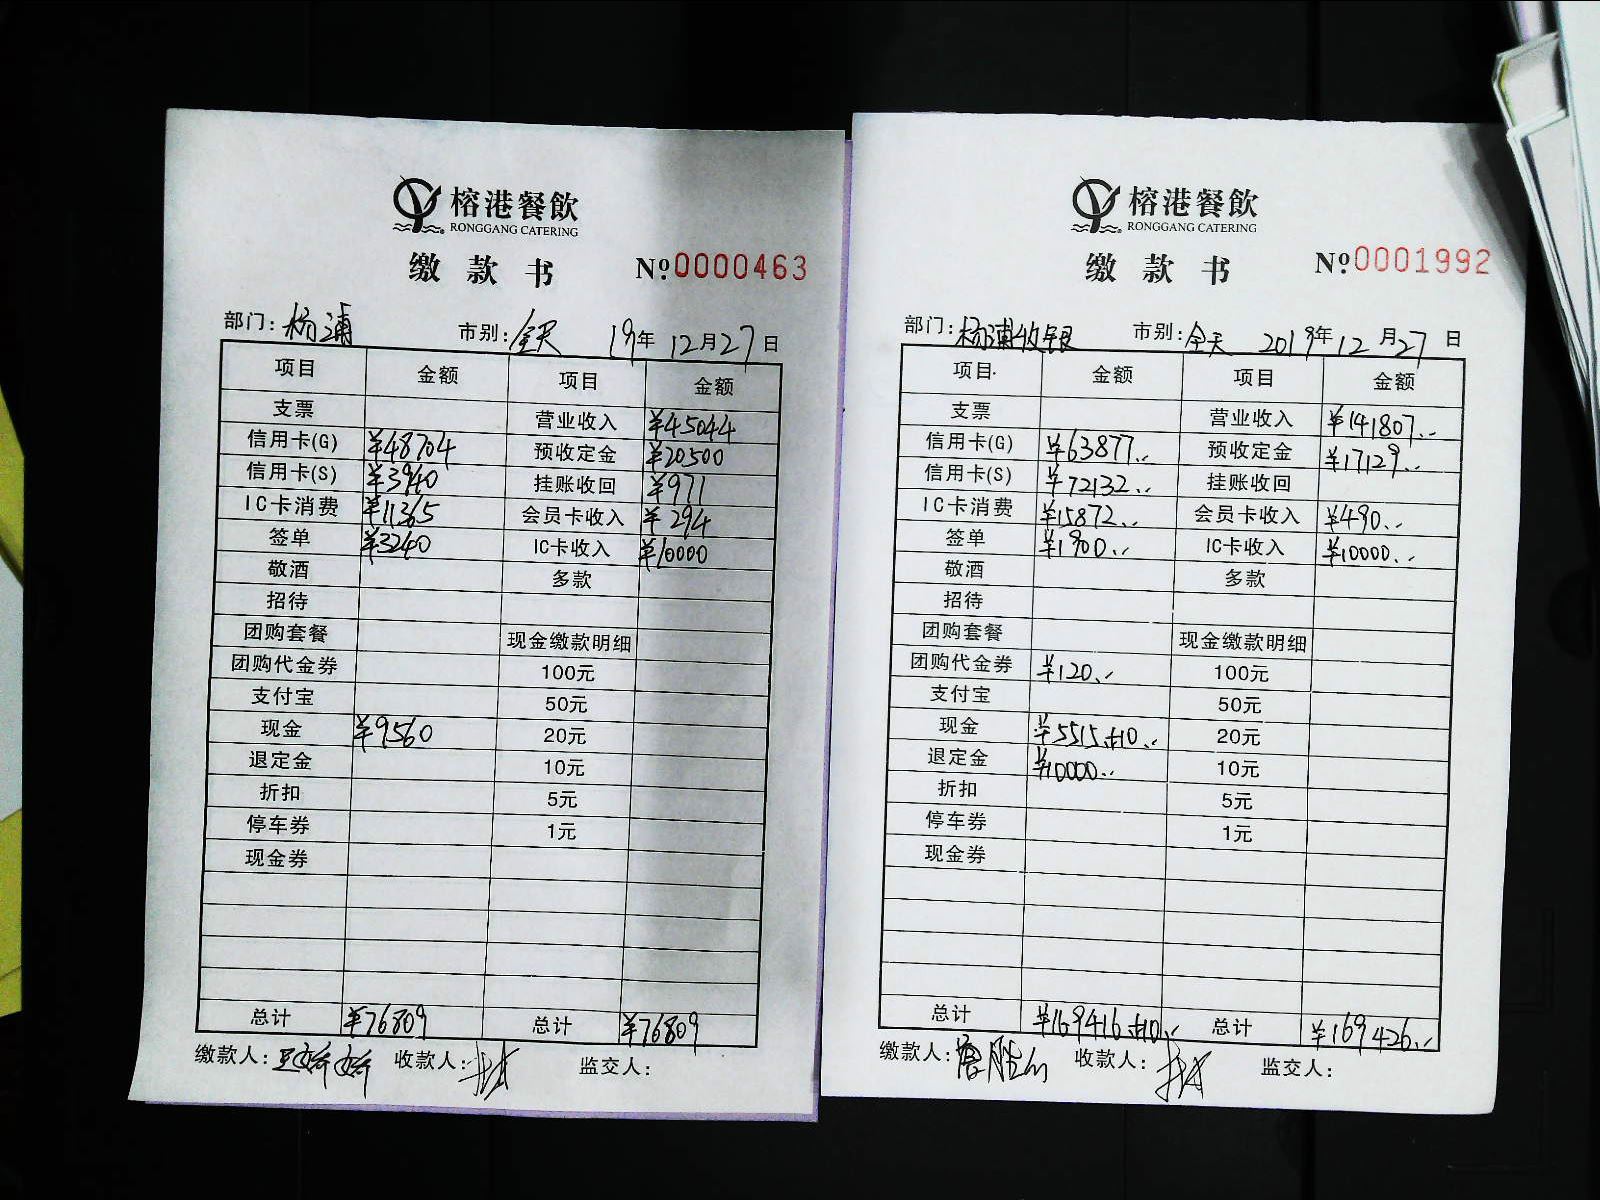 榕港餐飲
RONGGANG CATERING
缴款书 № 0000463
部门: 杨浦 市别: 全天 19年 12月 27日
项目 金额 项目 金额
支票 营业收入 ¥45044
信用卡(G) ¥48704 预收定金 ¥20500
信用卡(S) ¥3940 挂账收回 ¥971
IC卡消费 ¥11365 会员卡收入 ¥294
签单 ¥3240 IC卡收入 ¥10000
敬酒 多款
招待
团购套餐 现金缴款明细
团购代金券 100元
支付宝 50元
现金 ¥9560 20元
退定金 10元
折扣 5元
停车券 1元
现金券
总计 ¥76809 总计 ¥76809
缴款人: 收款人: 监交人:
榕港餐飲
RONGGANG CATERING
缴款书 № 0001992
部门: 杨浦收银 市别: 全天 2019年 12月 27日
项目 金额 项目 金额
支票 营业收入 ¥141807.--
信用卡(G) ¥63877.-- 预收定金 ¥17129.--
信用卡(S) ¥72132.-- 挂账收回
IC卡消费 ¥15872.-- 会员卡收入 ¥490.--
签单 ¥1900.-- IC卡收入 ¥10000.--
敬酒 多款
招待
团购套餐 现金缴款明细
团购代金券 ¥120.-- 100元
支付宝 50元
现金 ¥5515+10.-- 20元
退定金 ¥10000.-- 10元
折扣 5元
停车券 1元
现金券
总计 ¥169416+10.-- 总计 ¥169426.--
缴款人: 收款人: 监交人: